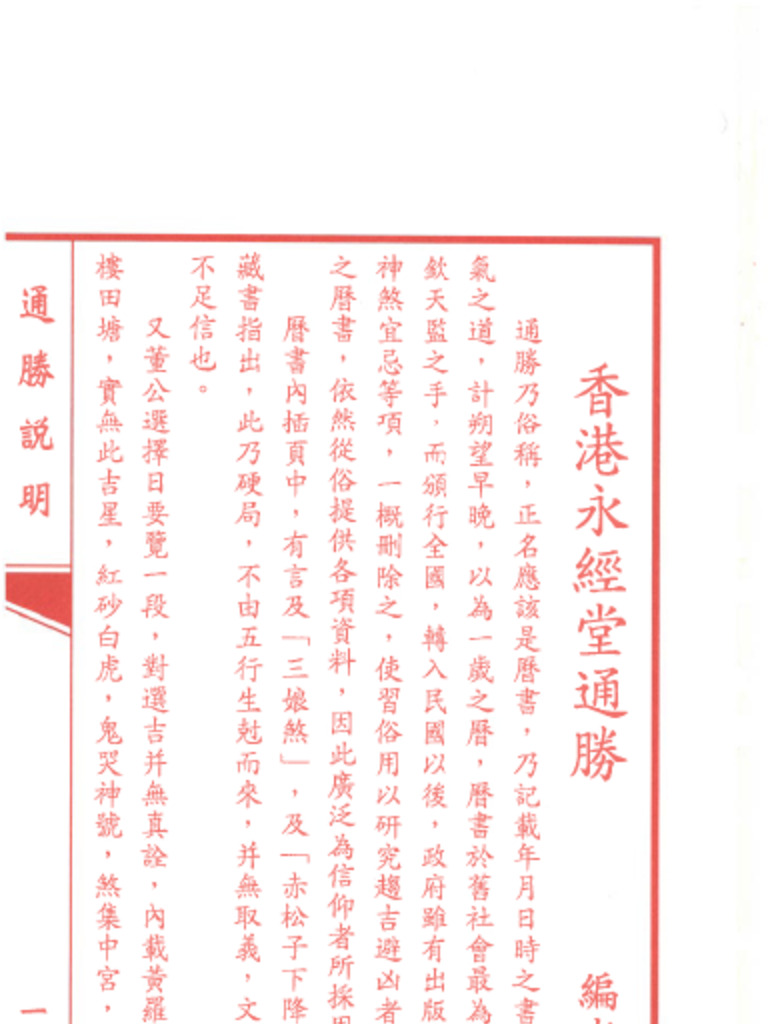 香港永經堂通勝 編
通勝乃俗稱，正名應該是曆書，乃記載年月日時之書
氣之道，計朔望早晚，以為一歲之曆，曆書於舊社會最為
欽天監之手，而頒行全國，轉入民國以後，政府雖有出版
神煞宜忌等項，一概刪除之，使習俗用以研究趨吉避凶者
之曆書，依然從俗提供各項資料，因此廣泛為信仰者所採用
曆書內插頁中，有言及「三娘煞」，及「赤松子下降
藏書指出，此乃硬局，不由五行生尅而來，并無取義，文
不足信也。
又董公選擇日要覽一段，對選吉并無真詮，內載黃羅
樓田塘，實無此吉星，紅砂白虎，鬼哭神號，煞集中宮，
通勝説明
一